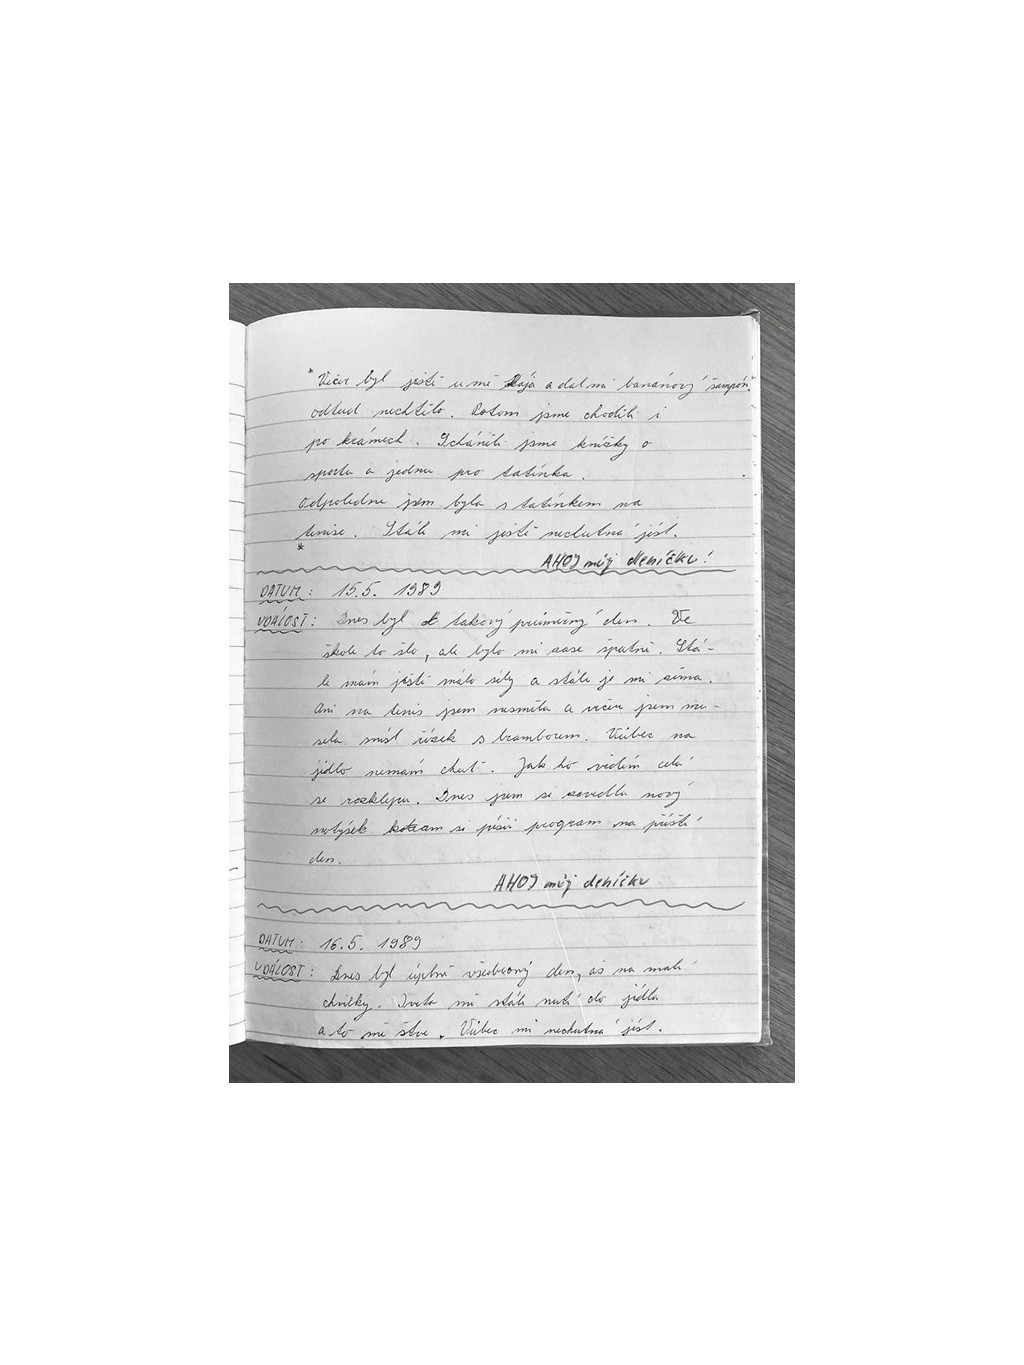 * Večer byl ještě u mě Kája a dal mi banánový šampón.
odtud nechtělo. Potom jsme chodili i
po krámech. Scháněli jsme knížky o
sportu a jednu pro tatínka.
Odpoledne jsem byla s tatínkem na
tenise. Stále mi ještě nechutná jíst.
*
AHOJ můj deníčku!
DATUM: 15.5. 1989
UDÁLOST: Dnes byl takový průměrný den. Ve
škole to šlo, ale bylo mi zase špatně. Stá-
le mám ještě málo síly a stále je mi zima.
Ani na tenis jsem nesměla a večer jsem mu-
sela sníst řízek s bramborem. Vůbec na
jídlo nemám chuť. Jak ho vidím celá
se rozklepu. Dnes jsem si zavedla nový
notýsek kotcam si píši program na příští
den.
AHOJ můj deníčku
DATUM: 16.5. 1989
UDÁLOST: Dnes byl úplně všeberný den, až na malé
chvilky. Iveta mě stále nutí do jídla
a to mě štve. Vůbec mi nechutná jíst.